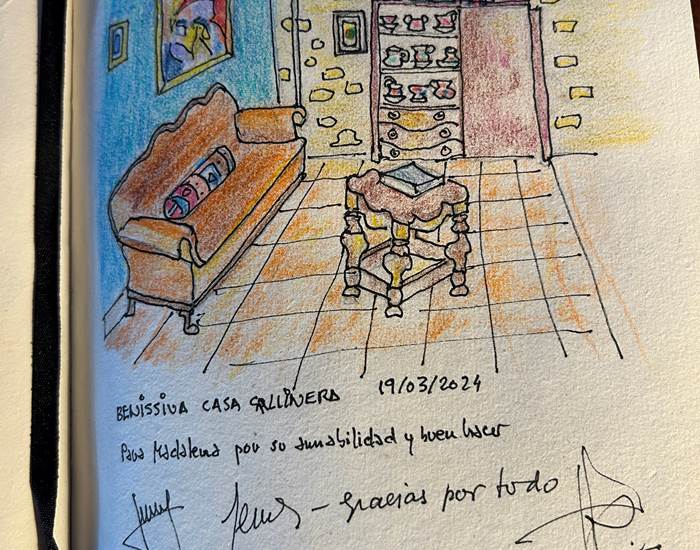 BENISSIVA CASA GALLINERA 19/03/2024
Para Madalena por su amabilidad y buen hacer
- gracias por todo